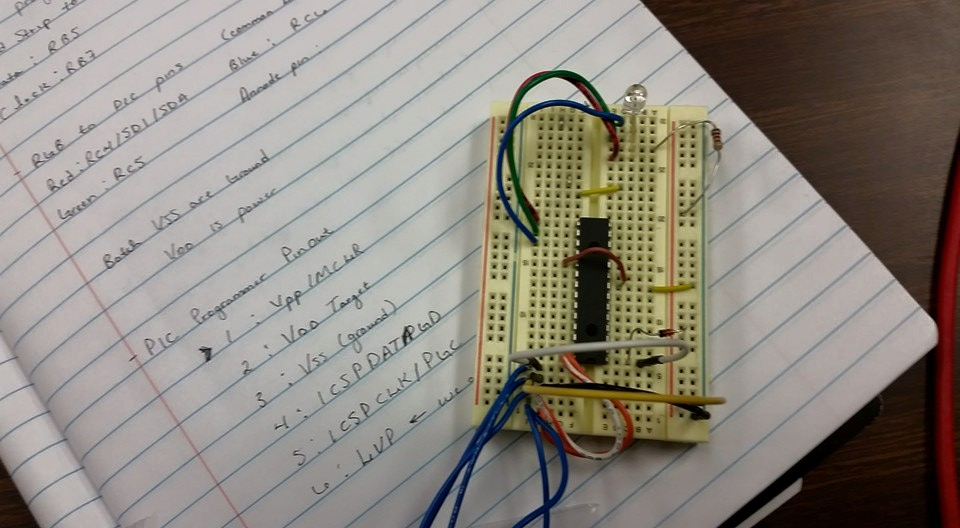 Strip to
Data : RB5
Clock : RB7
- RGB to PIC pins (common
Red : RC4/SDI/SDA Blue : RC6
Green : RC5 Anode pin.
Both VSS are Ground
VDD is power
- PIC Programmer Pinout
1 : Vpp/MCLR
2 : VDD Target
3 : Vss (ground)
4 : ICSPDATA/PGD
5 : ICSPCLK/PGC
6 : LVP ← we